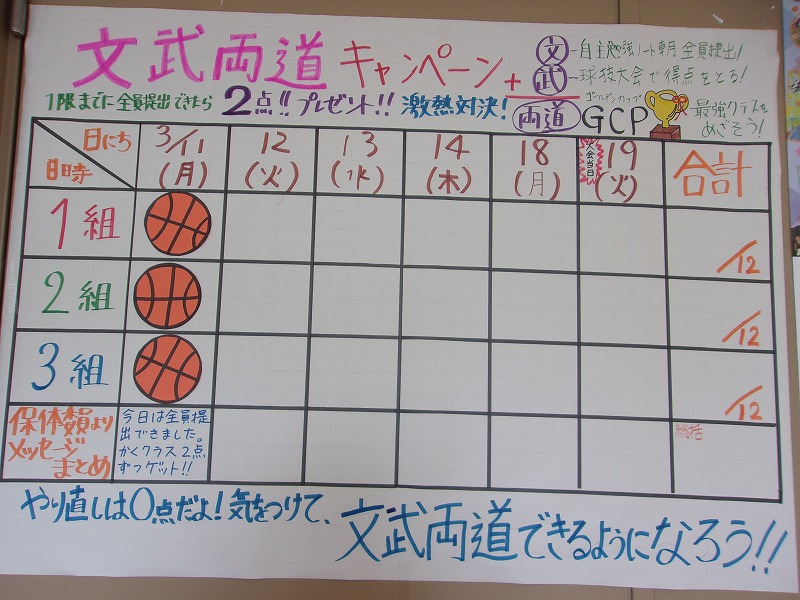 文武両道キャンペーン+
文―自主勉強ノート朝月全員提出!
武―球技大会で得点をとる!
1限までに全員提出できたら2点!!プレゼント!!激熱対決!
両道 ゴールデンカップ GCP 最強クラスをめざそう!
日にち 3/11(月) 12(火) 13(水) 14(木) 18(月) 大会当日 19(火) 合計
日時
1組 /12
2組 /12
3組 /12
保体委員より
メッセージ
まとめ
今日は全員提
出できました。
かくクラス2点
ずつゲット!!
総活
やり直しは0点だよ!気をつけて、文武両道できるようになろう!!